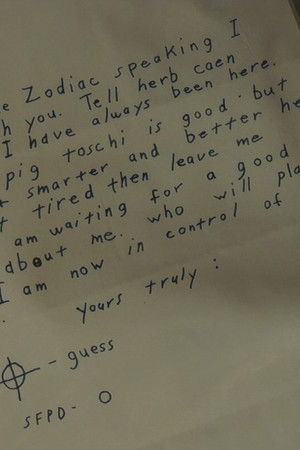 e Zodiac speaking I
h you. Tell herb caen
I have always been here.
pig toschi is good. but
smarter and better he
t tired then leave me
am waiting for a good
about me. who will pla
I am now in control of
yours truly:
- guess
SFPD - 0